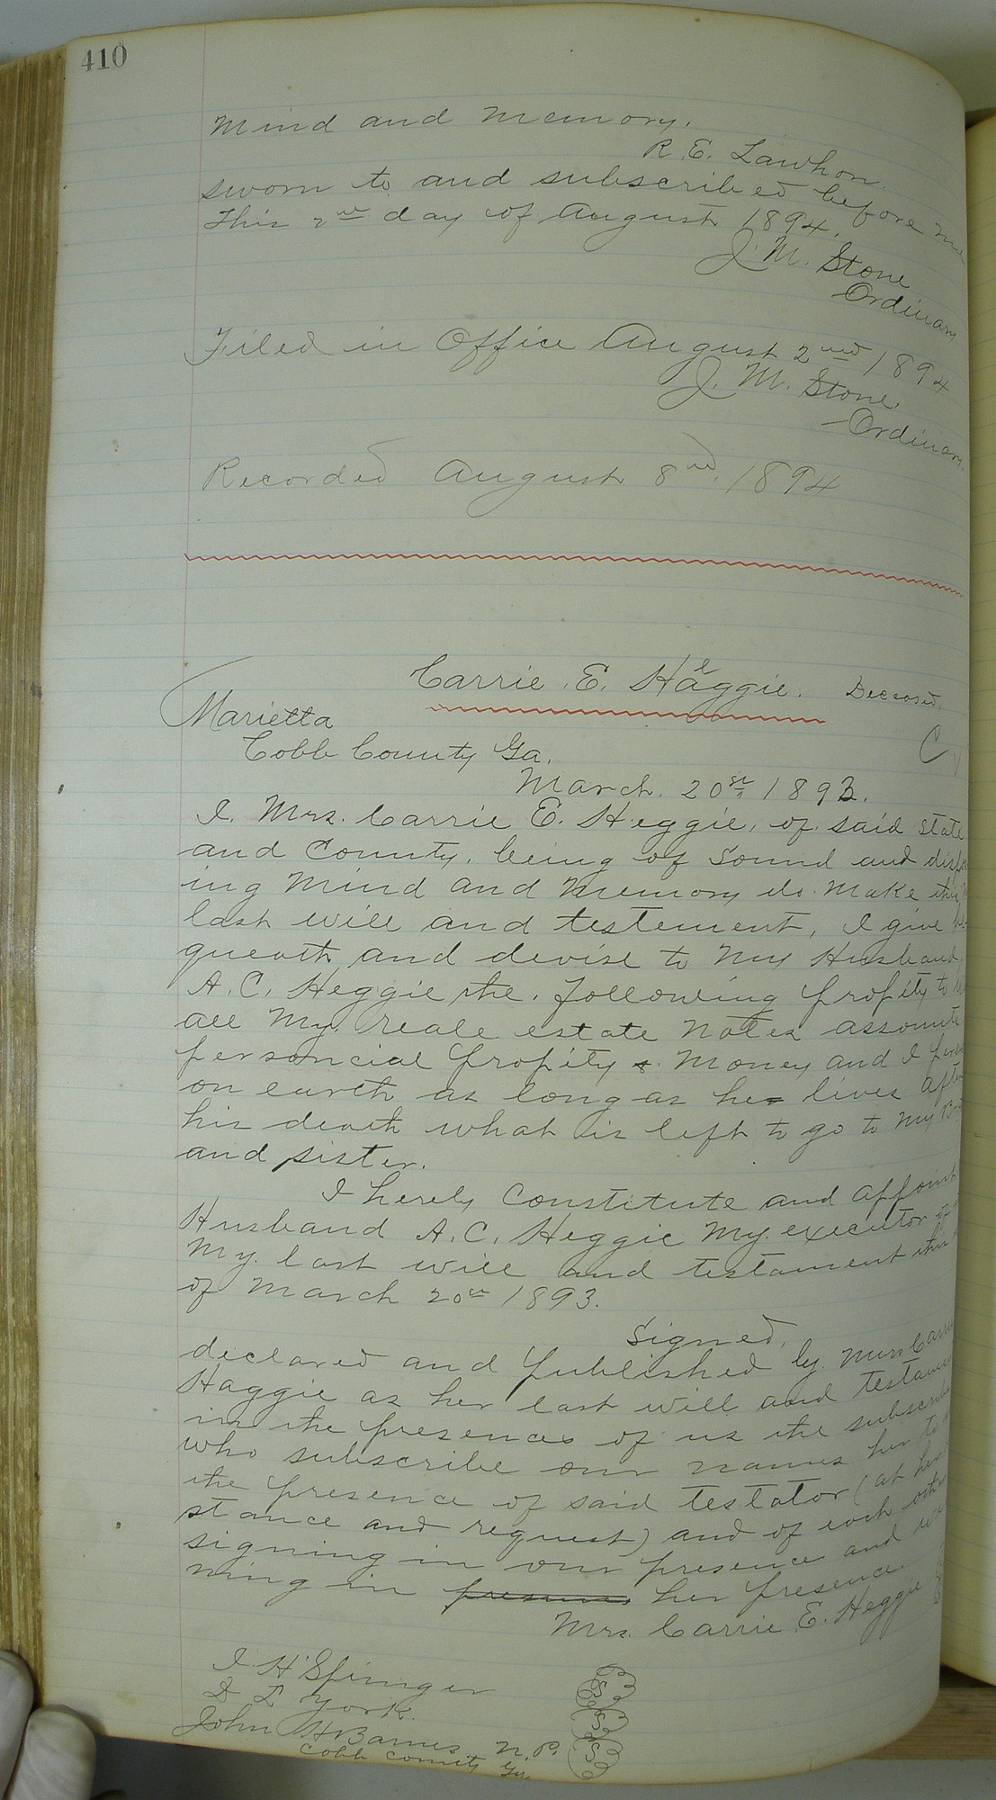 410
Mind and Memory.
R. E. Lawhon.
sworn to and subscribed before me
This 2nd day of August 1894.
J. M. Stone
Ordinary
Filed in Office August 2nd 1894
J. M. Stone
Ordinary.
Recorded August 8nd 1894
Carrie E. Haeggie. Deceased.
Marietta
Cobb County Ga.
March. 20st 1893.
I. Mrs. Carrie E. Heggie, of said State
and County, being of Sound and dispos
ing Mind and Memory do Make this
last will and testement, I give be
queath and devise to My Husband
A. C. Heggie the following propity to
all My reale estate Notes
persocial propity & Money and I
on earth as long as he lives after
his death what is left to go to My
and sister.
I herely Constitute and appoint
Husband A. C. Heggie My executor of
My last will and testament this
of March 20st 1893.
Signed,
declared and published by Mrs Carrie
Haggie as her last will and testament
in the presences of us the subscribe
who subscribe our names her to
the presence of said testator (at her
stance and request) and of each other
signing in our presence and we
ning in presence her presence
Mrs. Carrie E. Heggie
I. H. Spinger
D L York.
John H Barnes N. P.
Cobb County Ga